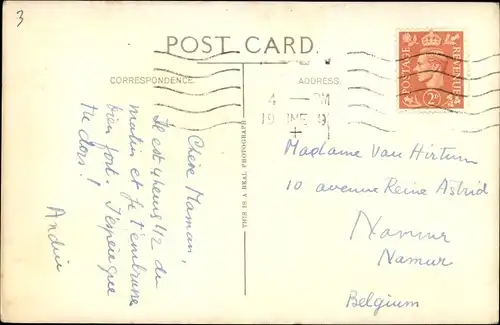 3
POST CARD.
CORRESPONDENCE.
ADDRESS.
POSTAGE
REVENUE
2D
4 — PM
19
THIS IS A REAL PHOTOGRAPH
Chère Maman,
Il est 4 heures 1/2 du
matin et je t'embrasse
bien fort. J'espère que
tu dors !
André
Madame Van Hirtum
10 avenue Reine Astrid
Namur
Namur
Belgium